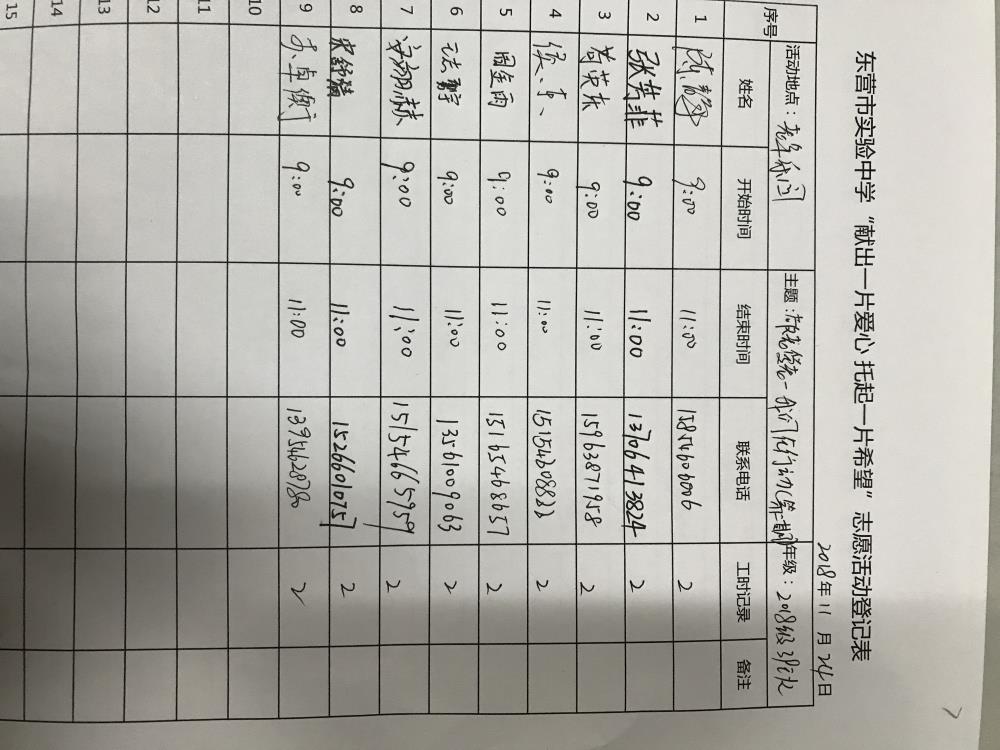 东营市实验中学“献出一片爱心 托起一片希望”志愿活动登记表
2018年11月24日
活动地点：老年公寓 主题： 年级：2018级
序号 姓名 开始时间 结束时间 联系电话 工时记录 备注
1 9:00 11:00 15854606006 2
2 张芳菲 9:00 11:00 13706413824 2
3 葛英东 9:00 11:00 15963871958 2
4 9:00 11:00 15154208822 2
5 周金雨 9:00 11:00 15165468657 2
6 9:00 11:00 13561009063 2
7 9:00 11:00 15154665959 2
8 9:00 11:00 15266010757 2
9 9:00 11:00 13954628780 2
10
11
12
13
14
15
7